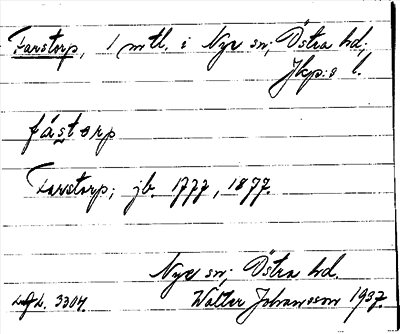 Farstorp, 1 mtl. i Nye sn; Östra hd;
Jkp:s l.
fástɵrp
Farstorp; jb. 1777, 1877.
Nye sn; Östra hd.
Walter Johansson 1937.